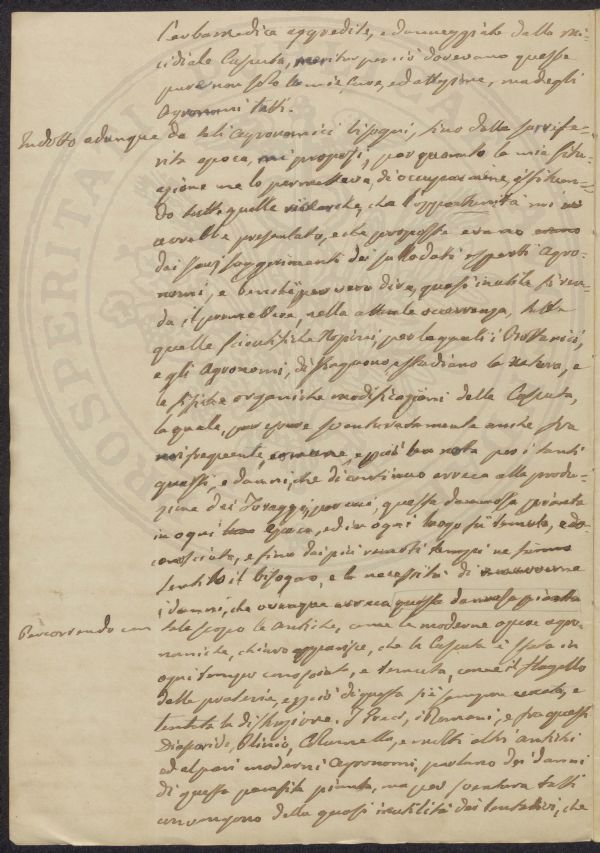 l'erba medica aggredite, e danneggiate dalla mi-
cidiale Cuscuta, perciò dovevano queste
pure non solo le mie cure, ed attenzione, ma degli
Agronomi tutti.
Indotto adunque da tali agronomici bisogni, sino dalla surrife-
rita epoca, mi proposi, per quanto la mia situ-
azione me lo permetteva, di occuparmene,
do tutte quelle ricerche, che l'opportunità mi
avrebbe presentato, e che proposte erano
dai suggerimenti dei sullodati esperti Agro-
nomi, e benchè per vero dire, quasi inutile si ren-
da il premettere, nella attuale occorrenza, tutte
quelle scientifiche Nozioni, per le quali i Bottanici,
e gli Agronomi, distinguono, e studiano la natura, e
le fisiche organiche modificazioni della Cuscuta,
la quale, per essere sventuratamente anche fra
noi frequente, comune, e più ben nota per i tanti
guasti, e danni, che di continuo arreca alla produ-
zione dei Foraggi, per cui, questa dannosa pianta
in ogni epoca, ed in ogni luogo fu temuta, e
conosciuta, e fino dai più remoti tempi ne
sentito il bisogno, e la necessità di
i danni, che ovunque arreca questa dannosa pianta
Percorrendo con tale scopo le antiche, come le moderne opere agro-
nomiche, chiaro apparisce, che la Cuscuta è stata in
ogni tempo conosciuta, e temuta, come il flagello
delle praterie, e perciò di questa si è sempre cercata, e
tentata la distruzione. I Greci, i Romani, e fra questi
Dioscoride, Plinio, Columella, e molti altri antichi
ed al pari moderni Agronomi, parlano dei danni
di questa parasita pianta, ma per sventura tutti
convengono della quasi inutilità dei tentativi, che